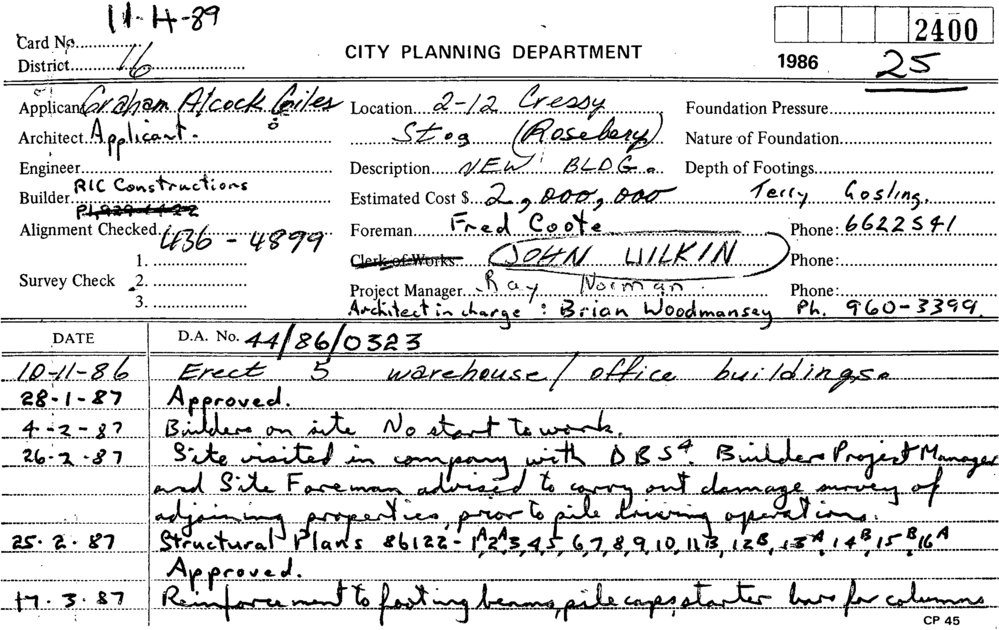 11-4-89
2400
Card No.
CITY PLANNING DEPARTMENT
1986
25
District 16
Applicant Graham Alcock Giles
Location 2-12 Cressy
Foundation Pressure
Architect Applicant.
St. (Rosebery)
Nature of Foundation
Engineer
Description NEW BLDG.
Depth of Footings
Builder RIC Constructions
Estimated Cost $ 2,000,000
Terry Gosling.
Alignment Checked 436-4899
Foreman Fred Coote
Phone: 6622541
1.
Clerk of Works
JOHN WILKIN
Phone:
Survey Check 2.
Project Manager Ray Norman
Phone:
3.
Architect in charge : Brian Woodmansey Ph. 960-3399.
DATE
D.A. No. 44/86/0323
10-11-86 Erect 5 warehouse/office buildings.
28-1-87 Approved.
4-2-87 Builders on site No start to work.
26-2-87 Site visited in company with DBS. Builders Project Manager
and Site Foreman advised to carry out damage survey of
adjoining properties, prior to pile driving operations.
25.2.87 Structural Plans 86122-1A,2A,3,4,5,6,7,8,9,10,11B,12B,13A,14B,15B,16A
Approved.
17.3.87 Reinforcement to footing beams, pile caps, starter bars for columns
CP 45